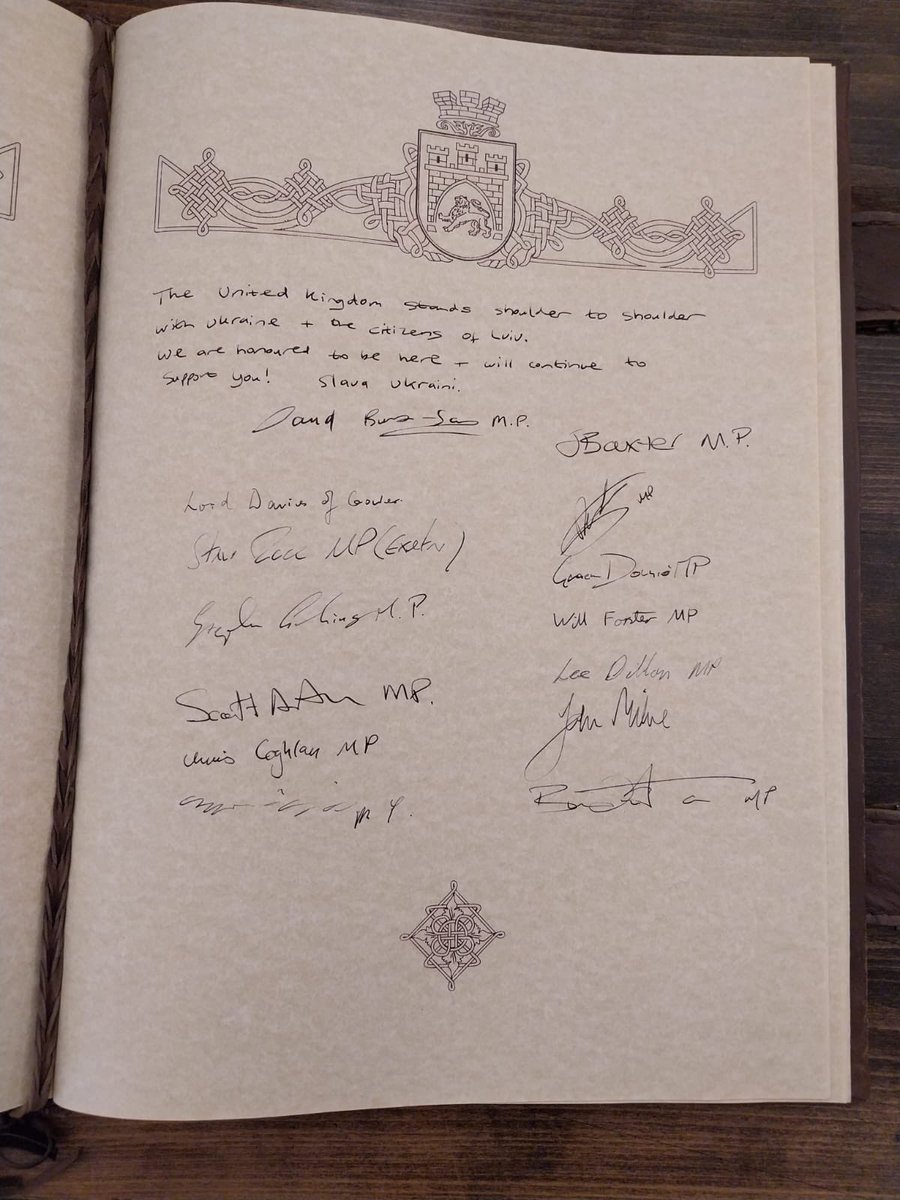 The United Kingdom stands shoulder to shoulder
with Ukraine + the citizens of Lviv.
We are honoured to be here + will continue to
support you! Slava Ukraini.
David M.P.
J Baxter M.P.
Lord Davies of Gower
MP
Steve Race MP (Exeter)
MP
Will Forster MP
M.P.
Lee Dillon MP
Scott Arthur MP.
John Milne
Chris Coghlan MP
MP